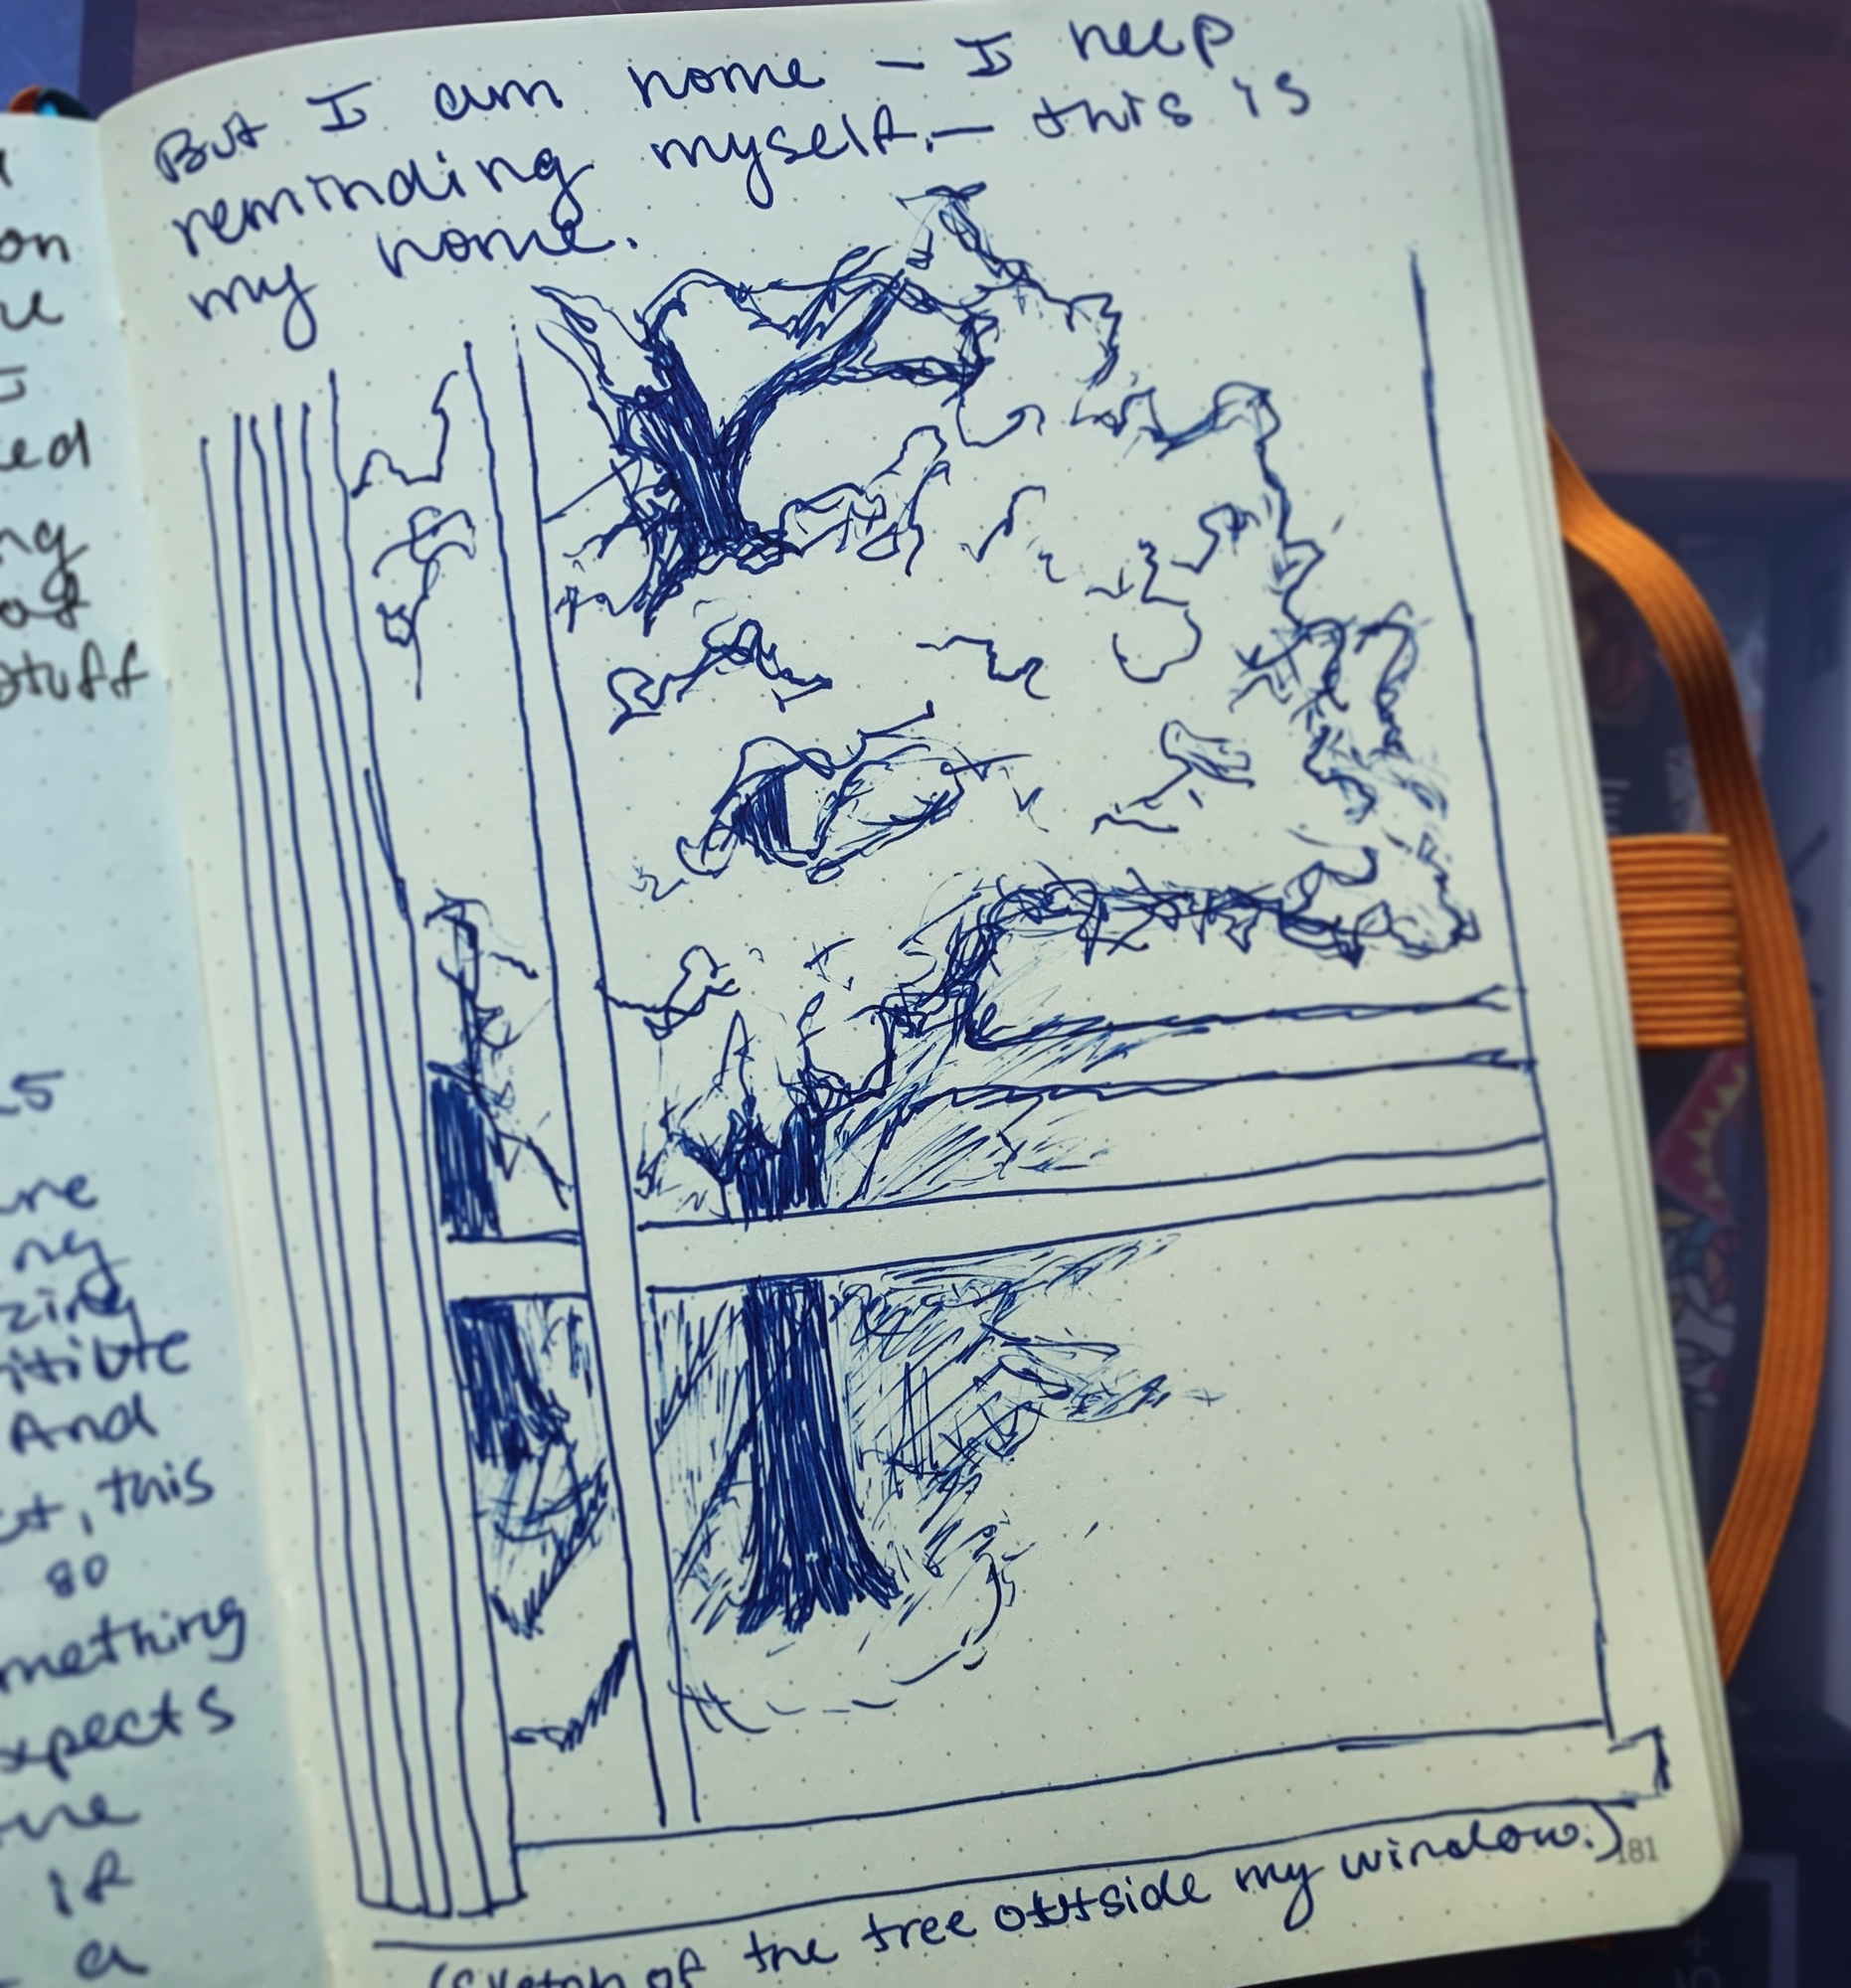 on
I
ed
ng
of
stuff
ng
zing
And
this
80
mething
xpects
if
a
But I am home – I keep
reminding myself. – this is
my home.
(Sketch of the tree outside my window.)
181